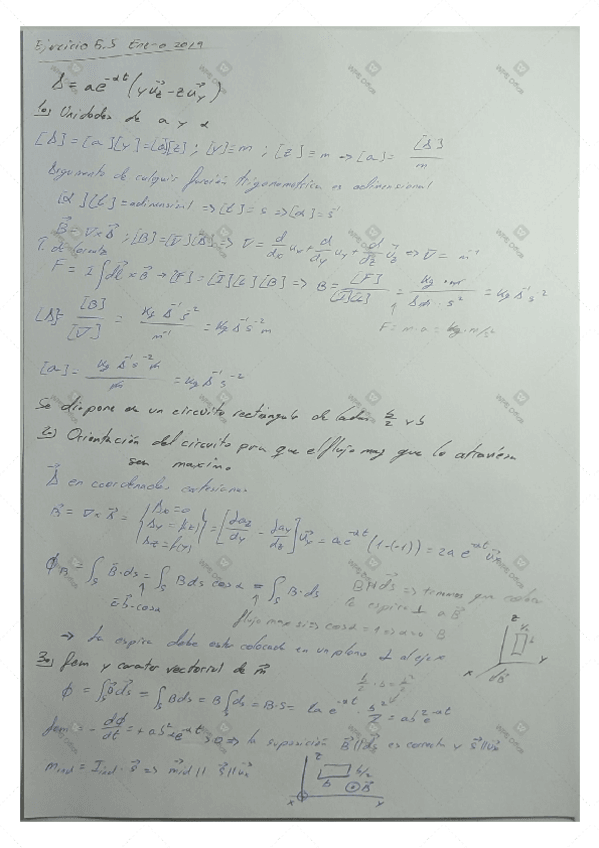 Ejercicio 6.5 Enero 2019
A⃗ = ae^-αt (y u⃗z - z u⃗y)
1o) Unidades de a y α
[A] = [a][y] = [a][z] ; [y] ≡ m ; [z] ≡ m => [a] = [A] / m
Argumento de cualquier función trigonometrica es adimensional
[α][t] = adimensional => [t] = s => [α] = s^-1
B⃗ = ∇ × A⃗ ; [B] = [∇][A] => ∇ = d/dx ux + d/dy uy + d/dz uz => ∇ = m^-1
F = I ∫ dl⃗ × B⃗ → [F] = [I][L][B] => B = [F] / [I][L] = kg · m / A · m · s^2 = kg A^-1 s^-2
F = m · a = kg · m/s^2
[A] = [B] / [∇] = kg A^-1 s^-2 / m^-1 = kg A^-1 s^-2 m
[a] = kg A^-1 s^-2 m / m = kg A^-1 s^-2
Se dispone de un circuito rectángulo de lados b/2 y b
2o) Orientación del circuito para que el flujo mag que lo atraviesa
sea maximo
A⃗ en coordenadas cartesianas
B⃗ = ∇ × A⃗ = { Ax = 0 Ay = f(z) Az = f(y) } = [dAz/dy - dAy/dz] u⃗x = ae^-αt (1-(-1)) = 2a e^-αt u⃗x
ϕB = ∫s B⃗ · ds = ∫s B ds cos α = ∫s B · ds B⃗ || ds => tenemos que colocar
la espira ⊥ a B⃗
a⃗ · b⃗ = cosα flujo max si => cosα = 1
=> La espira debe estar colocada en un plano ⊥ al eje x
z
y
x
dB⃗
3o) fem y caracter vectorial de m⃗
b/2 · b = b²/2
ϕ = ∫s B⃗ ds⃗ = ∫s B ds = B ∫s ds = B · S = 2a e^-αt · b²/2 = ab² e^-αt
fem = - dϕ/dt = + ab² α e^-αt > 0 => la suposición B⃗ || ds⃗ es correcta y s⃗ || u⃗x
mind = Iind · s⃗ => m⃗ind || s⃗ || u⃗x
z
b/2
b
B⃗
x
y